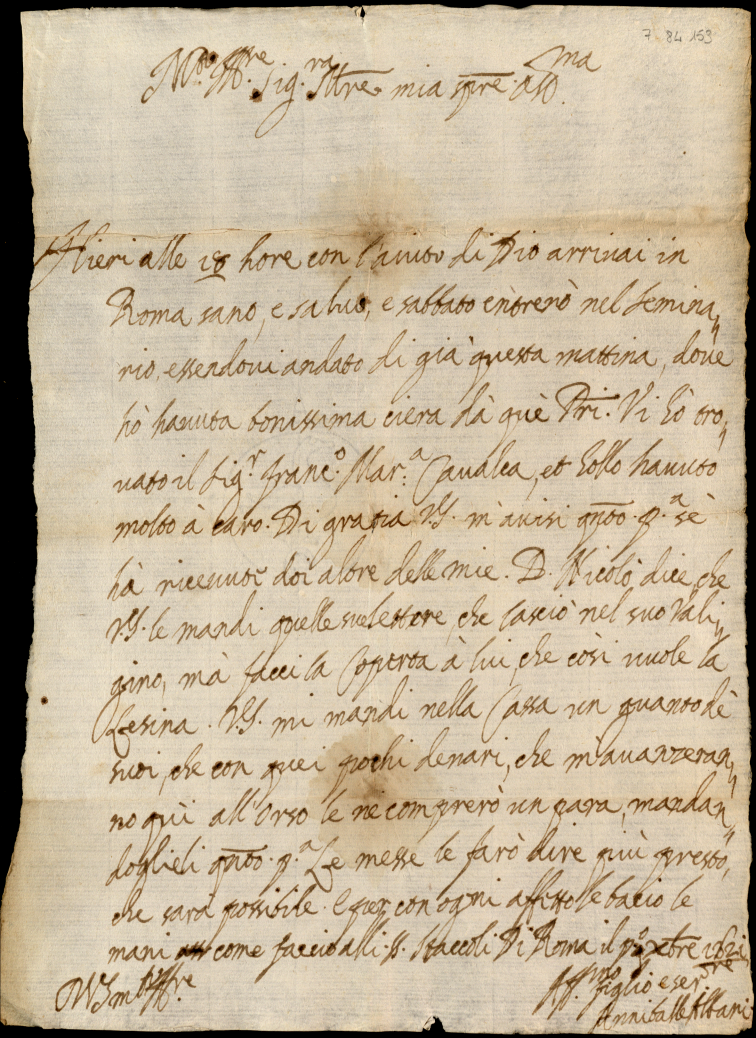 7 84 153
M.to Ill.re Sig.ra M̃re mia sp̃re oss.ma
Hieri alle 18 hore con l'aiuto di Dio arriuai in
Roma sano, e saluo, e sabbato entrerò nel Semina„
rio, essendoui andato di già questa mattina, doue
hò hauuta bonissima ciera dà què P̃ri. Vi hò tro„
uato il Sig.r Franc.o Mar.a Caualca, et hollo hauuto
molto à caro. Di gratia V.S. m'auisi qñto p.a sè
hà riceuute doi altre delle mie. D. Nicolò dice, che
V.S. le mandi quelle sue lettere, che lasciò nel suo Vali„
gino, mà facci la Coperta à lui, che così uuole la
Lesina. V.S. mi mandi nella Cassa un guanto dè
suoi, che con quei pochi denari, che m'auanzeran„
no quì all'Orso le ne comprerò un para, mandan„
doglieli qñto p.a Le messe le farò dire più presto,
che sarà possibile. E per con ogni affetto le bacio le
mani come faccio alli SS. Staccoli. Di Roma il p.o 1621
V.S. m.to Ill.re
Aff.mo figlio e ser.re
Annibale Albani